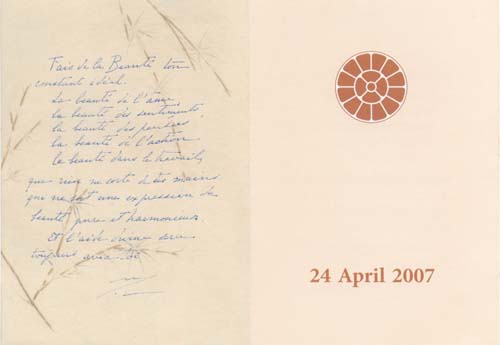 Fais de la Beauté ton
constant idéal.
La beauté de l'âme,
la beauté des sentiments,
la beauté des pensées
la beauté de l'action
la beauté dans le travail,
que rien ne sorte de tes mains
qui ne soit une expression de
beauté pure et harmonieuse.
Et l'aide divine sera
toujours avec toi
24 April 2007